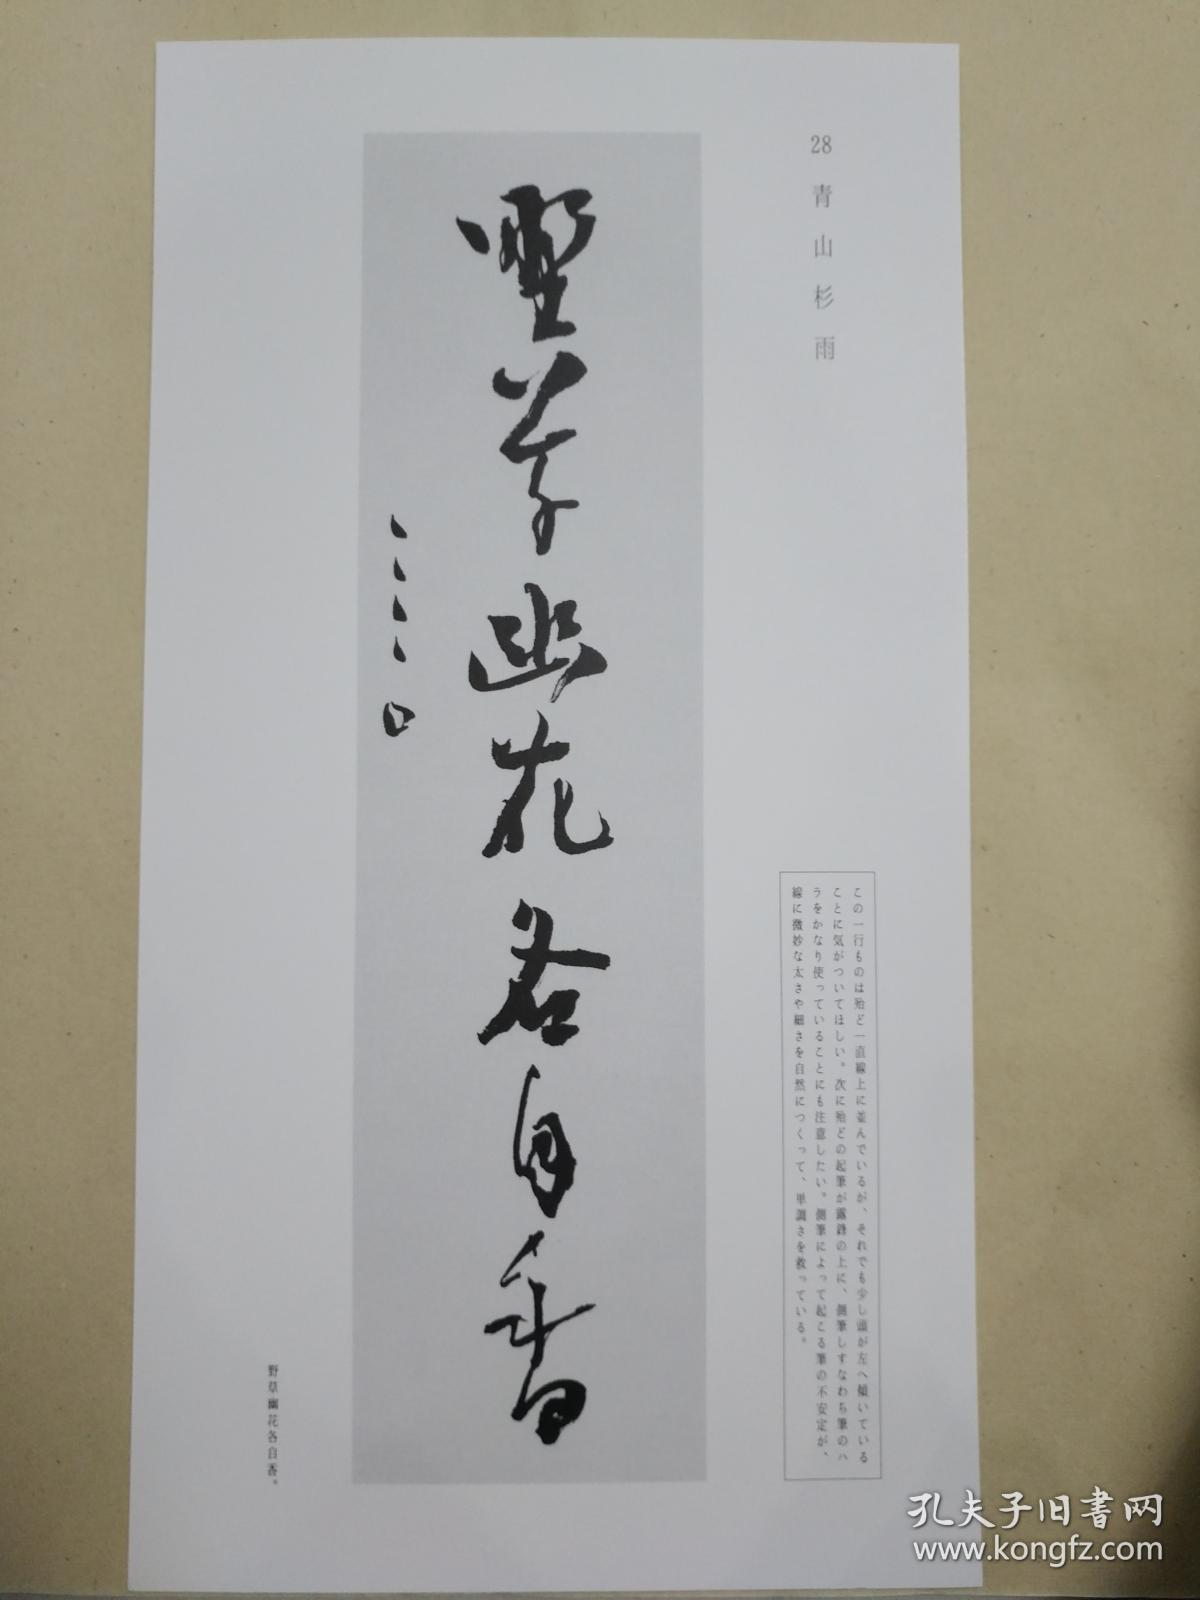 28 青山杉雨
この一行ものは殆ど一直線上に並んでいるが、それでも少し頭が左へ傾いている
ことに気がついてほしい。次に殆どの起筆が露鋒の上に、側筆しすなわち筆のハ
ラをかなり使っていることにも注意したい。側筆によって起こる筆の不安定が、
線に微妙な太さや細さを自然につくって、単調さを救っている。
野草幽花各自香
野草幽花各自香。
孔夫子旧书网
www.kongfz.com